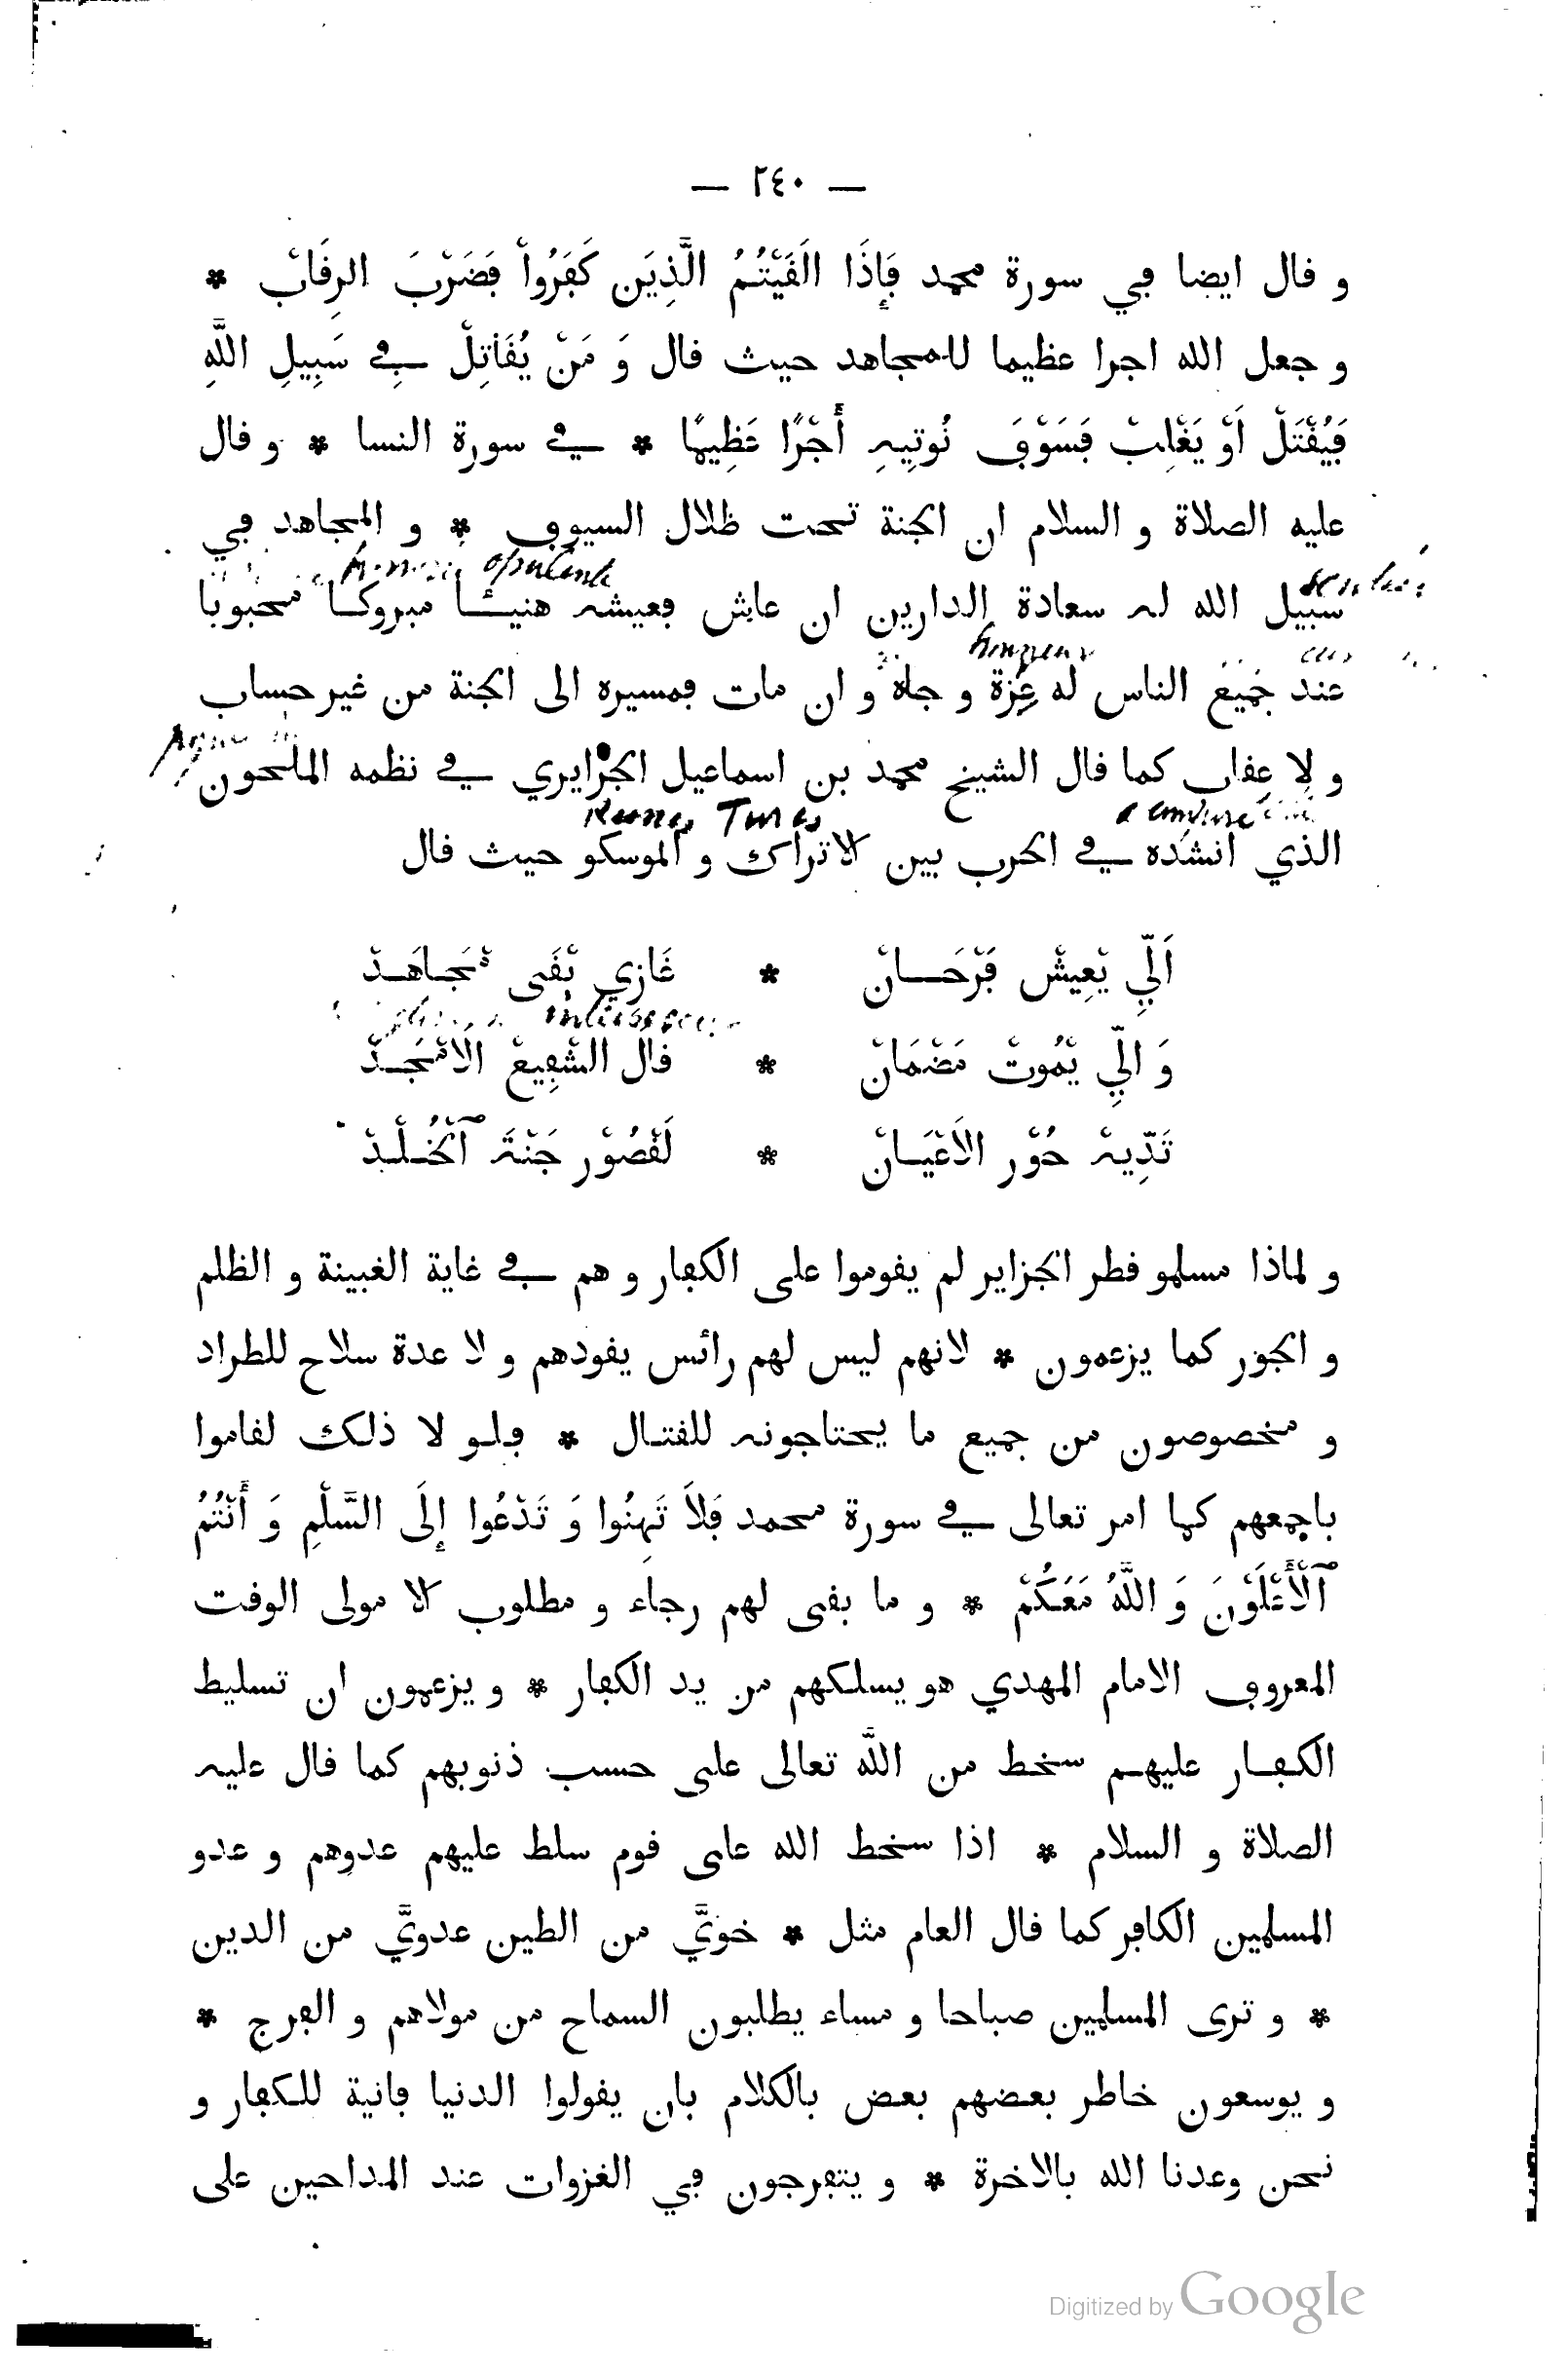 — ٢٤٠ —
و قال ايضا في سورة محمد فَإِذَا الَقَيْتُمُ الَّذِينَ كَفَرُواْ فَضَرْبَ الرِقَابْ *
و جعل الله اجرا عظيما للمجاهد حيث قال وَ مَنْ يُقَاتِلْ فِي سَبِيلِ اللَّهِ
فَيُقْتَلْ اَوْ يَغْلِبْ فَسَوْفَ نُوتِيهِ أَجْرًا عَظِيمًا * في سورة النسا * و قال
عليه الصلاة و السلام ان الجنة تحت ظلال السيوف * و المجاهد في
opulente
سبيل الله له سعادة الدارين ان عاش فعيشه هنيئا مبروكا محبوبا
عند جَمِيعَ الناس له عِزة و جاه و ان مات فمسيره الى الجنة من غير حساب
و لا عقاب كما قال الشيخ محمد بن اسماعيل الجزايري في نظمه الملحون
Russes Turcs
الذي انشده في الحرب بين الاتراك و الموسكو حيث قال
اَلِّي يْعِيشْ فَرْحَـانْ * غَازِي يْقَى مْجَـاهَـدْ
وَ الِّي يْمُوتْ مَضْمَانْ * قال الشْفِيعْ الَامْجَـدْ
تَدِّيهْ حُوْر الاَعْيَـانْ * لَقْصُوْر جَنْةَ ٱلْخُـلْـدْ
و لماذا مسلمو قطر الجزاير لم يقوموا على الكفار و هم في غاية الغبينة و الظلم
و الجور كما يزعمون * لانهم ليس لهم رائس يقودهم و لا عدة سلاح للطراد
و مخصوصون من جميع ما يحتاجونه للقتـال * فلـو لا ذلـك لقاموا
باجمعهم كما امر تعالى في سورة محمد فَلاَ تَهِنُوا وَ تَدْعُوا إِلَى السَّلْمِ وَ أَنْتُمُ
ٱلْأَعْلَوْنَ وَ اللَّهُ مَعَكُمْ * و ما بقى لهم رجاء و مطلوب الا مولى الوقت
المعروف الامام المهدي هو يسلكهم من يد الكفار * و يزعمون ان تسليط
الكفـار عليهـم سخط من اللَّه تعالى على حسب ذنوبهم كما قال عليه
الصلاة و السلام * اذا سخط الله على قوم سلط عليهم عدوهم و عدو
المسلمين الكافر كما قال العام مثل * خويَّ من الطين عدويَّ من الدين
* و ترى المسلمين صباحا و مساء يطلبون السماح من مولاهم و الفرج *
و يوسعون خاطر بعضهم بعض بالكلام بان يقولوا الدنيا فانية للكفار و
نحن وعدنا الله بالاخرة * و يتفرجون في الغزوات عند المداحين على
Digitized by Google